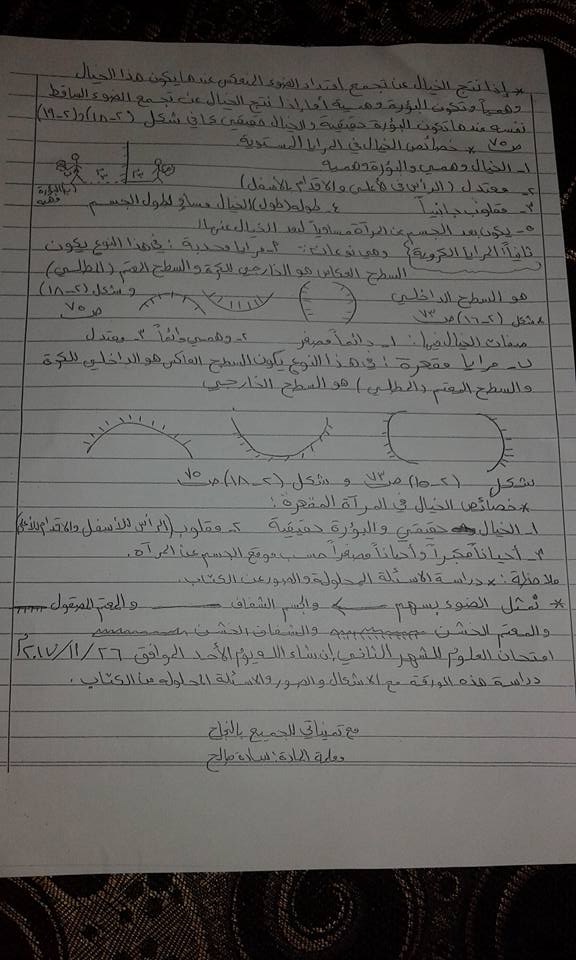 * إذا نتج الخيال عن تجمع امتداد الضوء المنعكس عندها يكون هذا الخيال
وهمياً وتكون البؤرة وهمية أما إذا نتج الخيال عن تجمع الضوء الساقط
نفسه عندها تكون البؤرة حقيقية والخيال حقيقي كما في شكل (٢-١٨) و(٢-١٩)
ص٧٥ * خصائص الخيال في المرايا المستوية
١- الخيال وهمي والبؤرة وهمية
٢- معتدل (الرأس في الأعلى والأقدام بالأسفل)
٣- مقلوب جانبياً ٤- طوله (طول) الخيال مساوٍ لطول الجسم
٥- يكون بعد الجسم عن المرآة مساوياً لبعد الخيال عنها
ثانياً المرايا الكروية وهي نوعان: ٢- مرايا محدبة: في هذا النوع يكون
السطح العاكس هو الخارجي للكرة والسطح المعتم (المطلي)
هو السطح الداخلي
* شكل (٢-١٦) ص٧٣ وشكل (٢-١٨) ص٧٥
صفات الخيال فيها: ١- دائماً مصغر ٢- وهمي دائماً ٣- معتدل
ب- مرايا مقعرة: في هذا النوع يكون السطح العاكس هو الداخلي للكرة
والسطح المعتم (المطلي) هو السطح الخارجي
شكل (٢-١٥) ص٧٣ و شكل (٢-١٨) ص٧٥
* خصائص الخيال في المرآة المقعرة:
١- الخيال حقيقي والبؤرة حقيقية ٢- مقلوب (الرأس للأسفل والأقدام للأعلى)
٣- أحياناً مكبراً وأحياناً مصغراً حسب موقع الجسم عن المرآة.
ملاحظة: * دراسة الأسئلة المحلولة والصور عن الكتاب.
* نُمثل الضوء بسهم ← والجسم الشفاف والمعتم المصقول
والمعتم الخشن والشفاف الخشن
امتحان العلوم للشهر الثاني إن شاء الله يوم الأحد الموافق ٢٠١٧/١١/٢٦
دراسة هذه الورقة مع الأشكال والصور والأسئلة المحلولة من الكتاب.
مع تمنياتي للجميع بالنجاح
معلمة المادة: سارة صالح